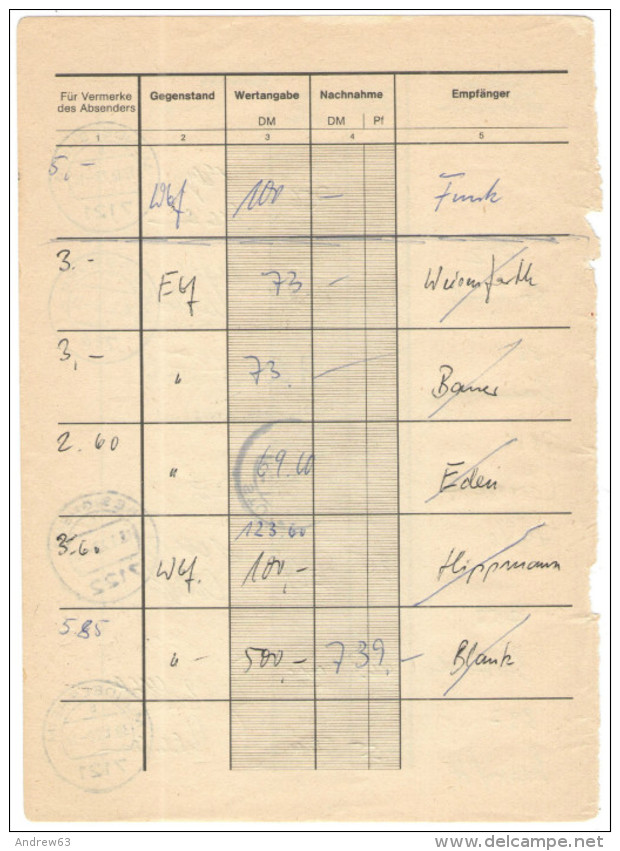 Für Vermerke des Absenders Gegenstand Wertangabe Nachnahme Empfänger
DM DM Pf
1 2 3 4 5
5,- Wbf 100 - Funk
3.- Ebf 73 -
3,- " 73. - Bauer
2.60 " 69.60 Eden
123.60
3.60 Wbf. 100,- Hippmann
5.85 " - 500,- 739,- Blank
7121
7122
7121
Andrew63
delcampe.net